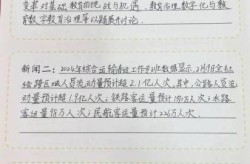 变革对基础教育的挑战与机遇、教育治理数字化与教
育数字教育治理等议题展开讨论。
新闻二:2026年综合运输春运工作专班数据显示,2月9日全社
会跨区域人员流动量预计超2.1亿人次,其中,公路人员流
动量预计超1.9亿人次,铁路客运量预计
客运量 万人次,民航客运量预计226万人次。